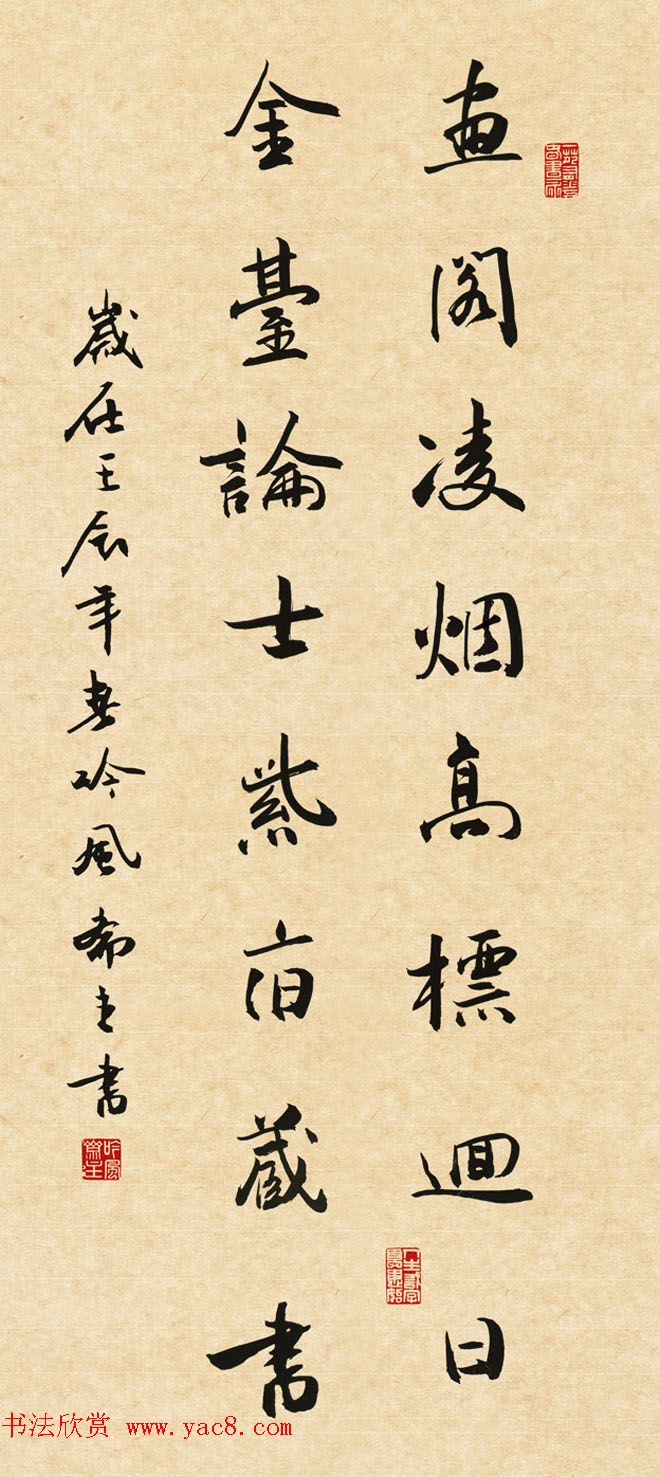 畫閣凌烟高標迴日
金臺論士紫宿藏書
歲在壬辰年春吟風齋主書
吟風齋主
书法欣赏 www.yac8.com